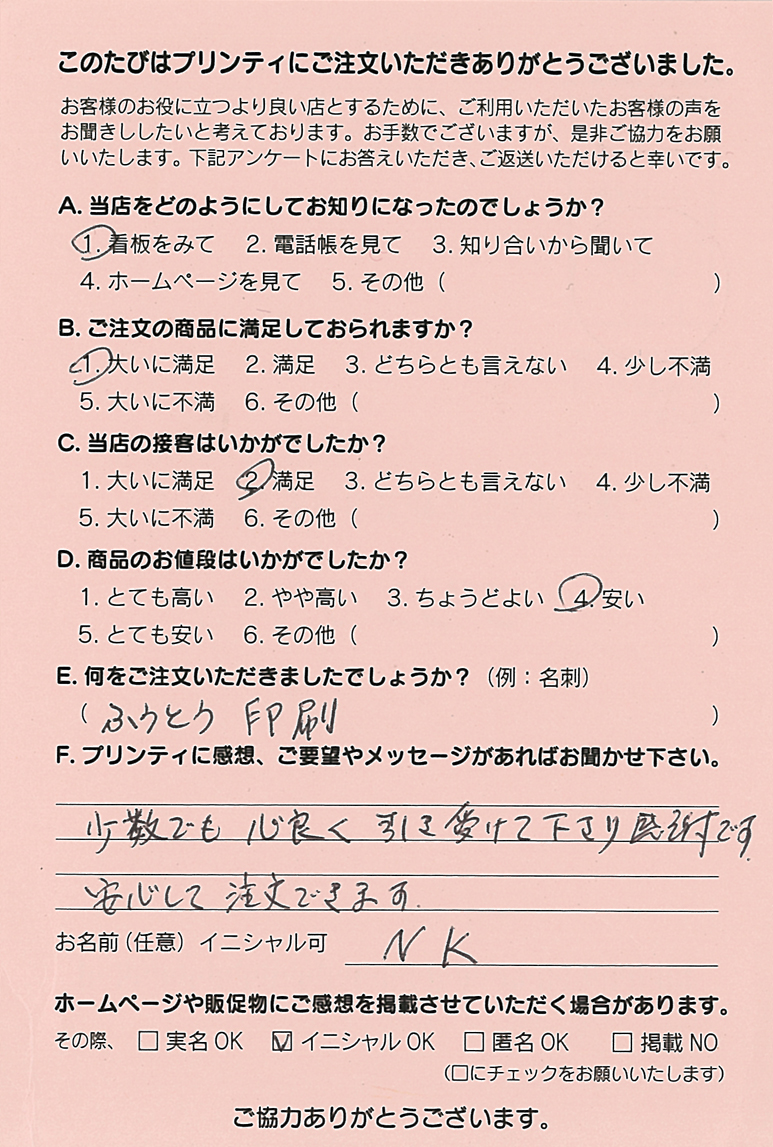 このたびはプリンティにご注文いただきありがとうございました。
お客様のお役に立つより良い店とするために、ご利用いただいたお客様の声を
お聞きししたいと考えております。お手数でございますが、是非ご協力をお願
いいたします。下記アンケートにお答えいただき、ご返送いただけると幸いです。
A. 当店をどのようにしてお知りになったのでしょうか？
1. 看板をみて 2. 電話帳を見て 3. 知り合いから聞いて
4. ホームページを見て 5. その他（ ）
B. ご注文の商品に満足しておられますか？
1. 大いに満足 2. 満足 3. どちらとも言えない 4. 少し不満
5. 大いに不満 6. その他（ ）
C. 当店の接客はいかがでしたか？
1. 大いに満足 2. 満足 3. どちらとも言えない 4. 少し不満
5. 大いに不満 6. その他（ ）
D. 商品のお値段はいかがでしたか？
1. とても高い 2. やや高い 3. ちょうどよい 4. 安い
5. とても安い 6. その他（ ）
E. 何をご注文いただきましたでしょうか？（例：名刺）
（ ふうとう 印刷 ）
F. プリンティに感想、ご要望やメッセージがあればお聞かせ下さい。
少数でも 心良く 引き受けて下さり 感謝です。
安心して 注文できます.
お名前（任意）イニシャル可 N K
ホームページや販促物にご感想を掲載させていただく場合があります。
その際、 □ 実名 OK ☑ イニシャル OK □ 匿名 OK □ 掲載 NO
（□にチェックをお願いいたします）
ご協力ありがとうございます。